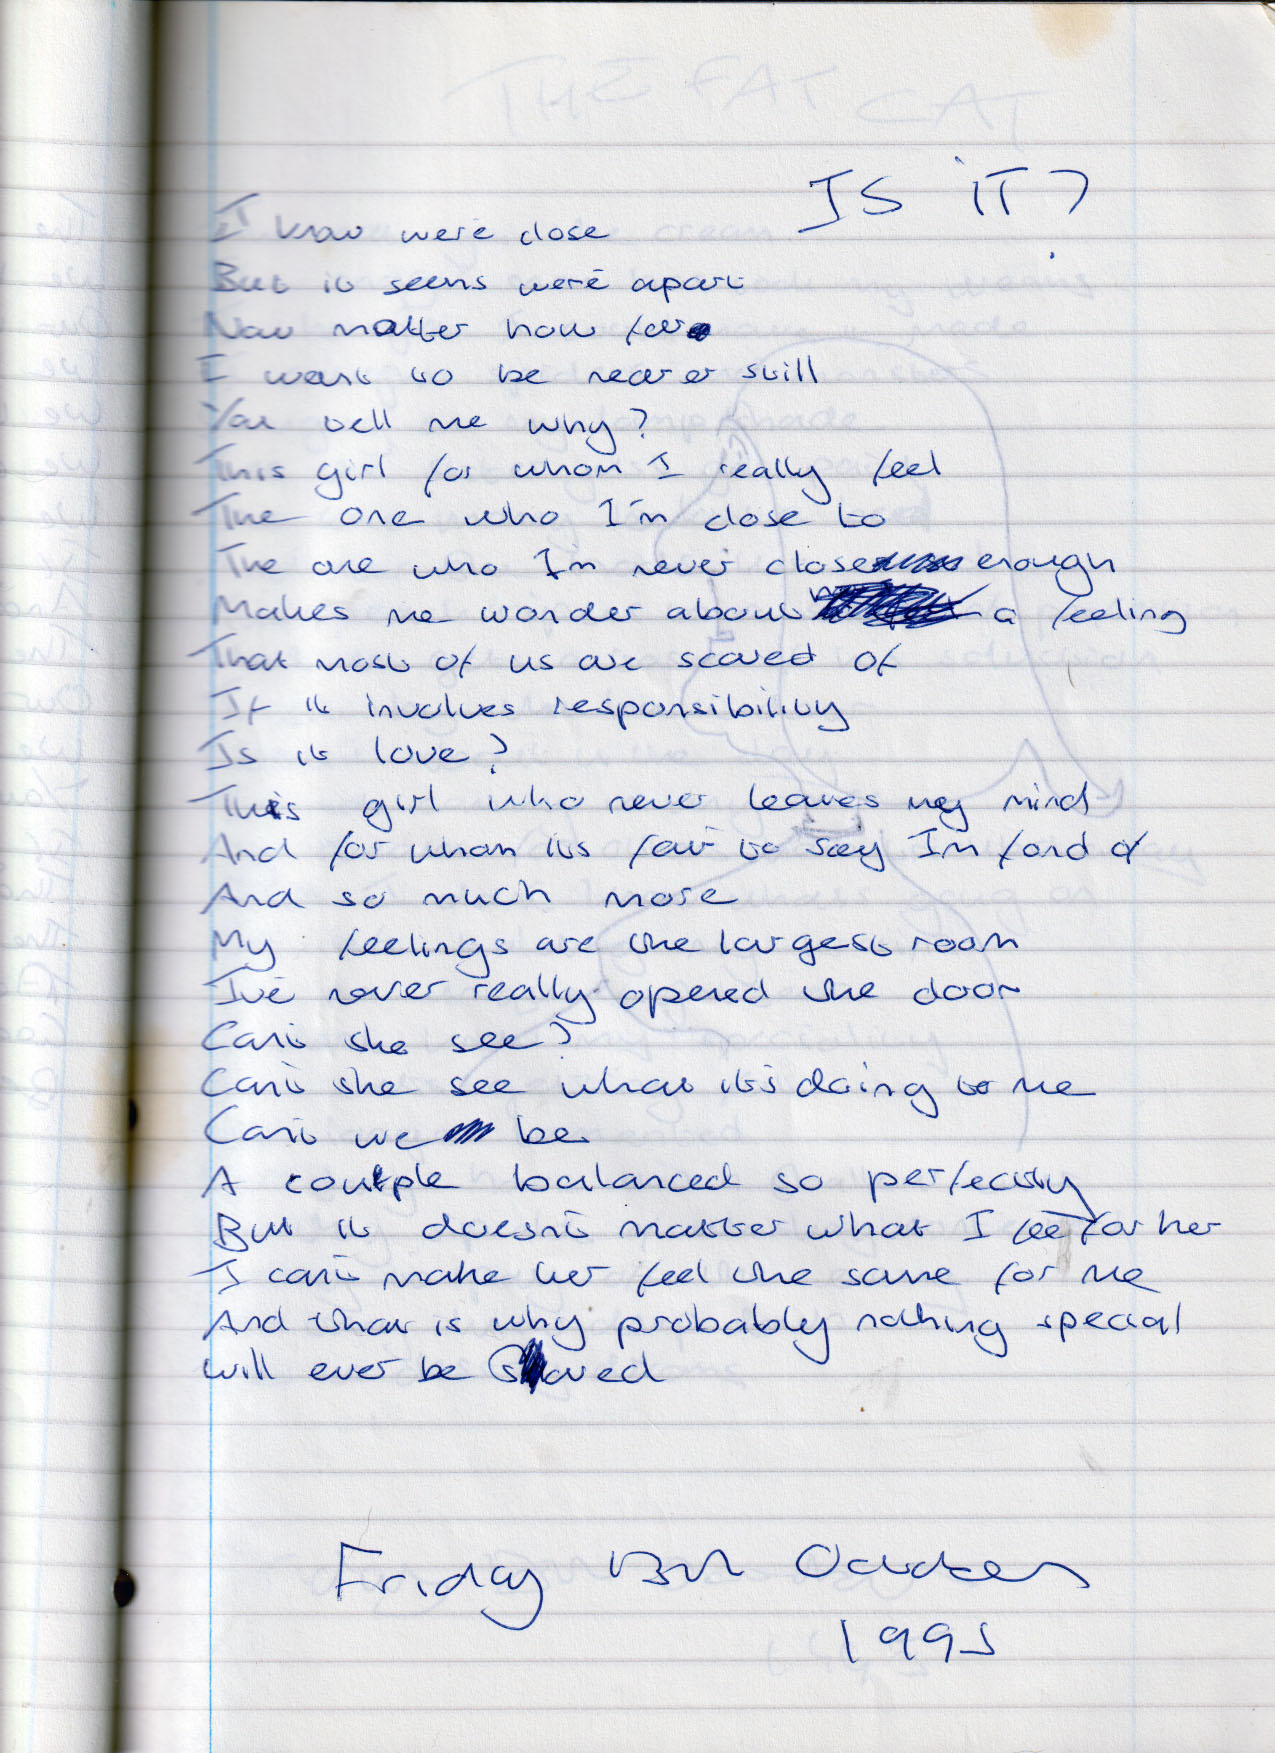 THE FAT CAT
IS IT?
I know were close
But it seems we're apart
Now matter how far
I want to be nearer still
You tell me why?
This girl for whom I really feel
The one who I'm close to
The one who I'm never close enough
Makes me wonder about a feeling
That most of us are scared of
If it involves responsibility
Is it love?
This girl who never leaves my mind
And for whom its fair to say Im fond of
And so much more
My feelings are the largest room
I've never really opened the door
Can't she see?
Can't she see what it's doing to me
Can't we be
A couple balanced so perfectly
But it doesn't matter what I feel for her
I can't make her feel the same for me
And that is why probably nothing special
will ever be shared
Friday 13th October
1995